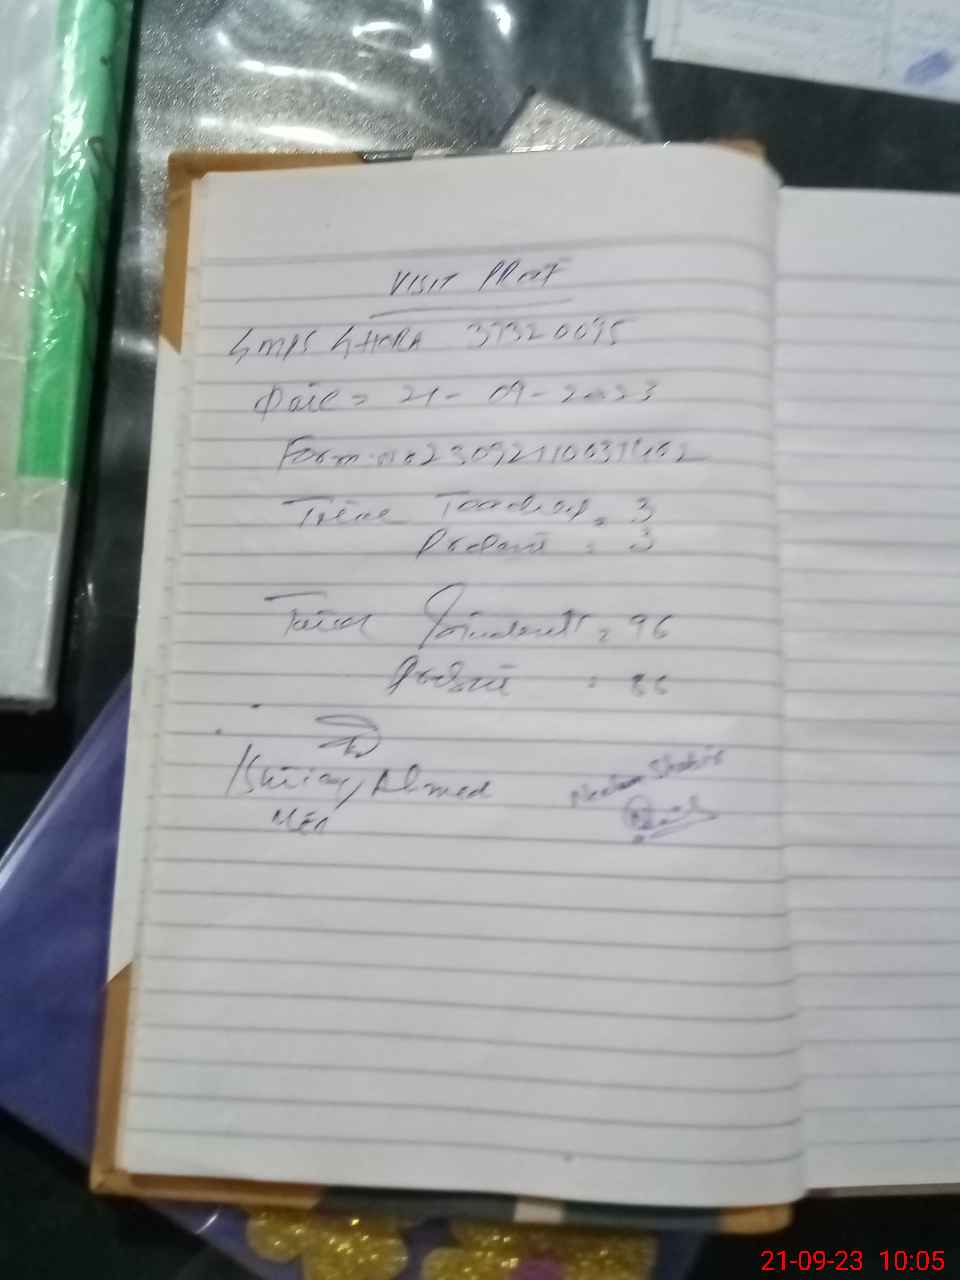 VISIT PROOF
GMPS GHORA 37320095
Date = 21-09-2023
Form no
Total Teachers = 3
Present = 3
Total Students = 96
Present = 86
Ishtiaq Ahmed
MEA
Neelam Shabir
21-09-23 10:05